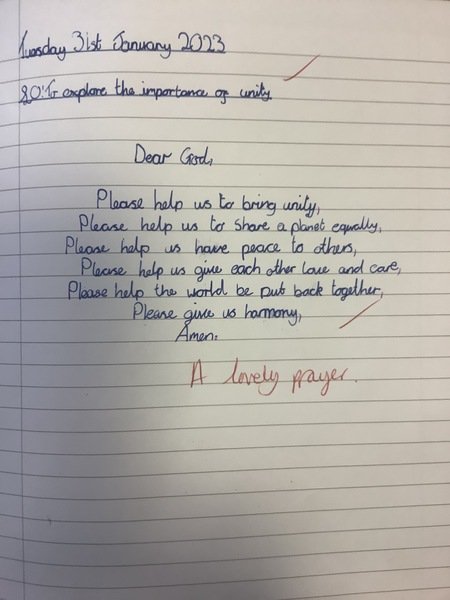 Tuesday 31st January 2023
LO: To explore the importance of unity
Dear God,
Please help us to bring unity,
Please help us to share a planet equally,
Please help us have peace to others,
Please help us give each other love and care,
Please help the world be put back together,
Please give us harmony,
Amen.
A lovely prayer.